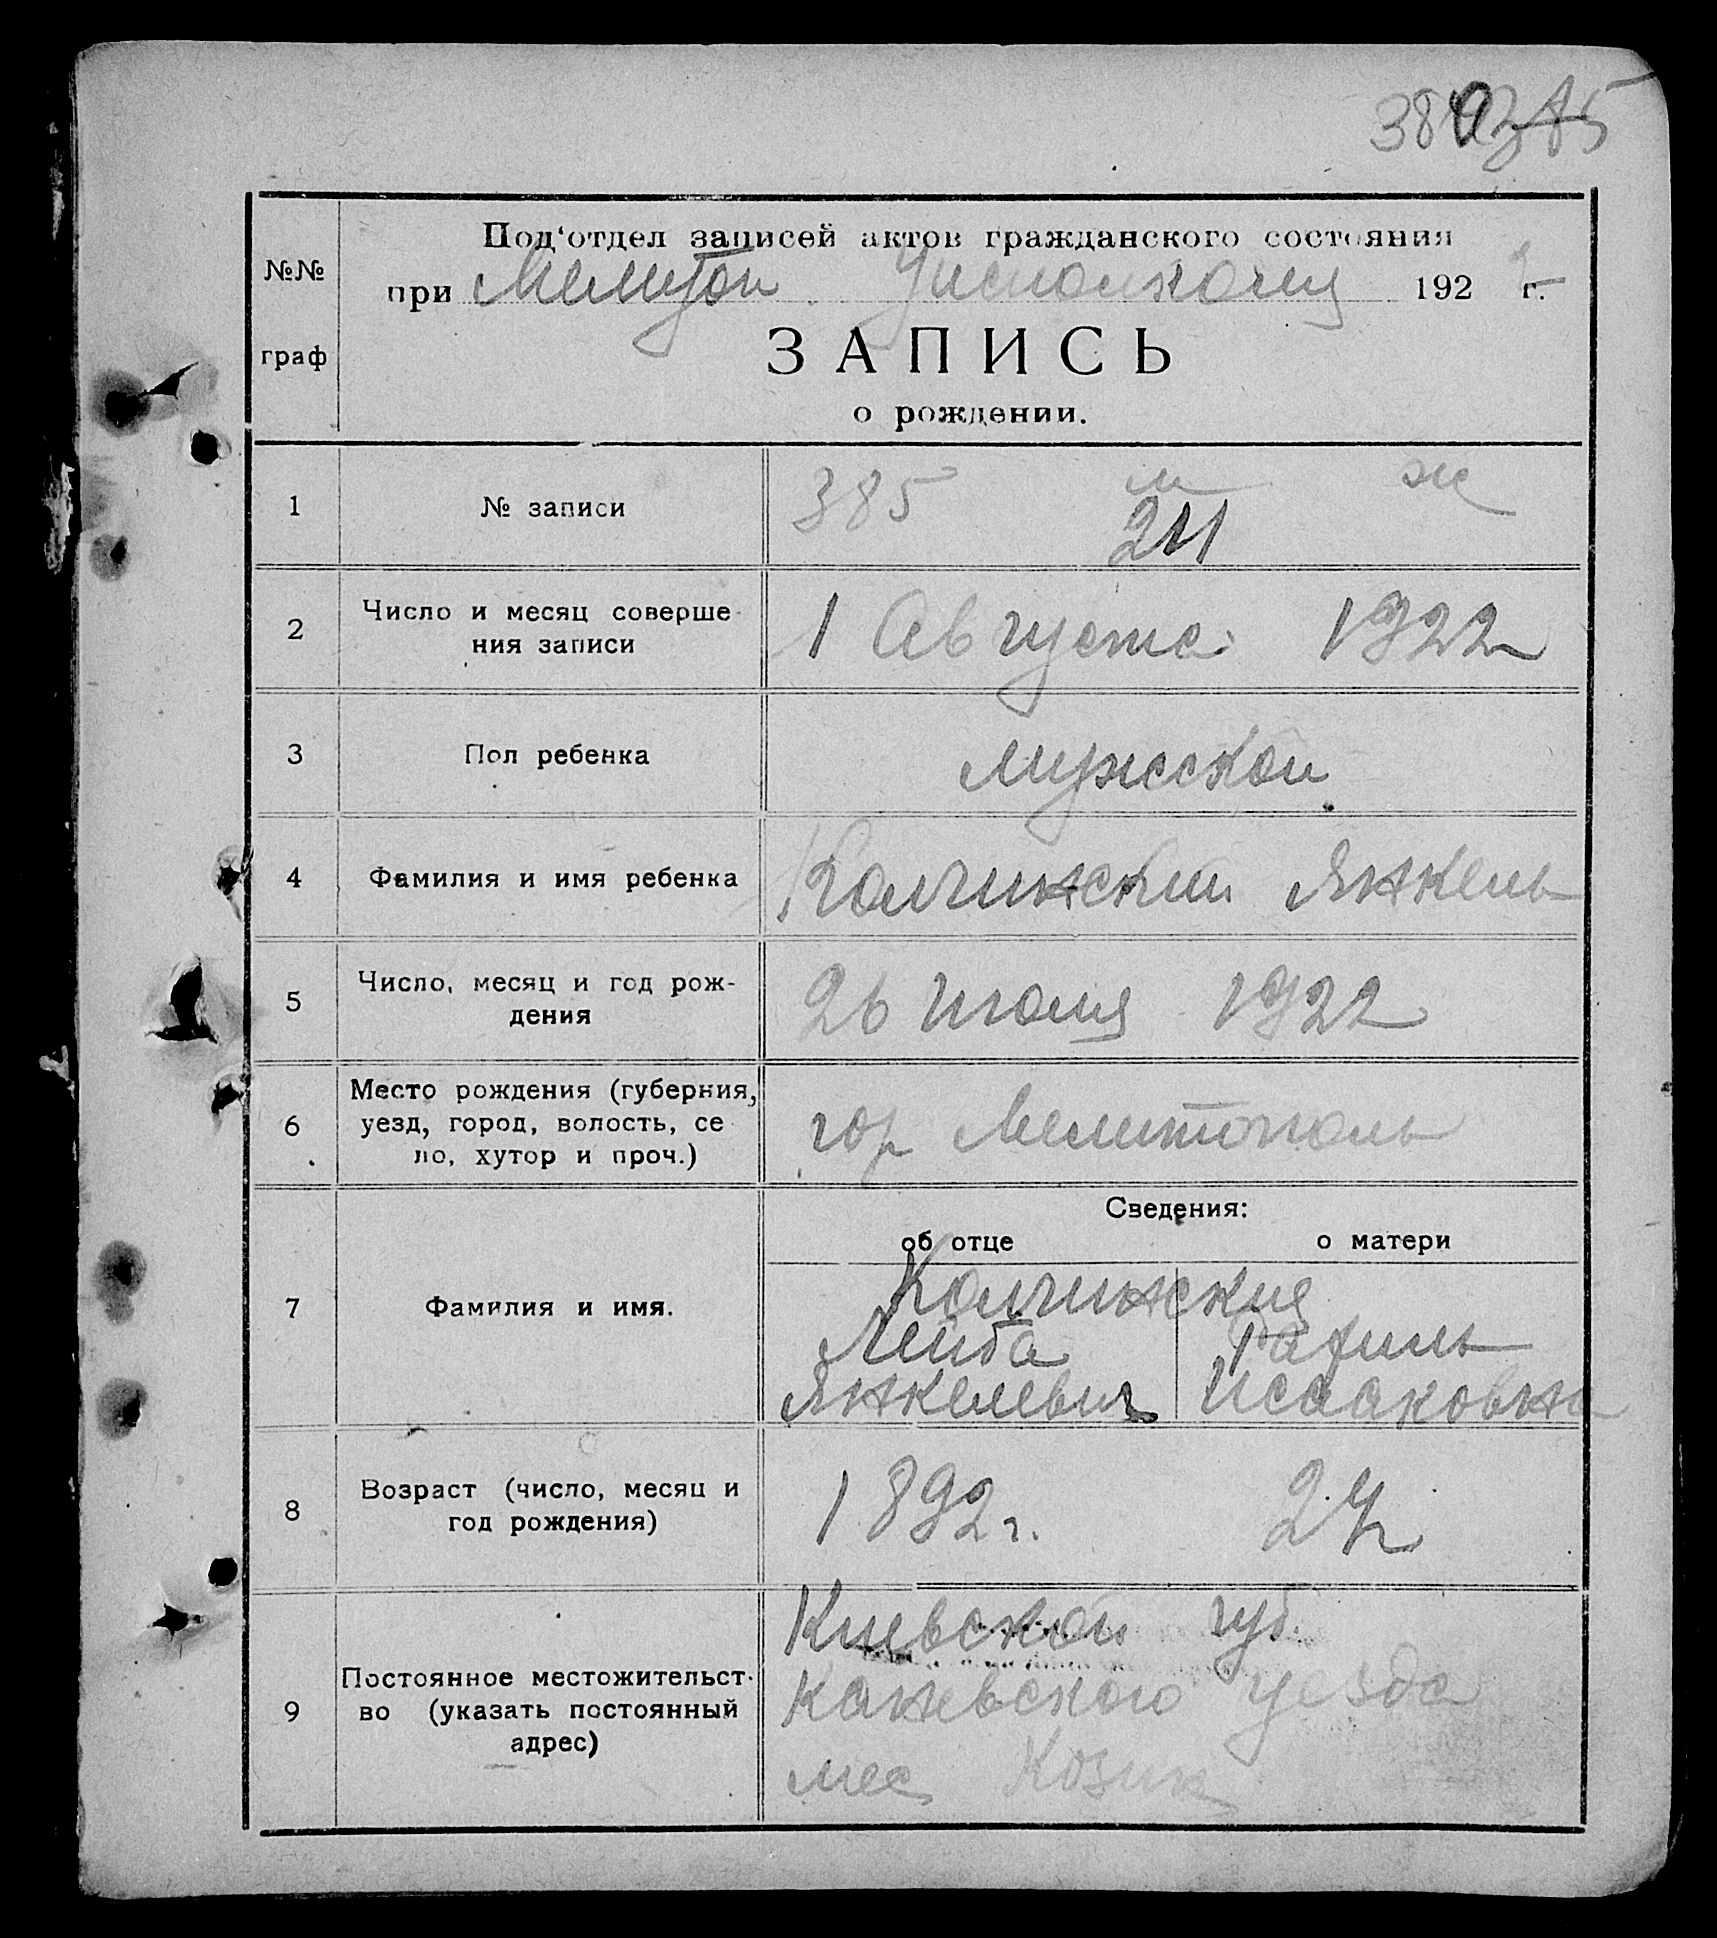 385
№№
граф
Под'отдел записей актов гражданского состояния
при Мелитоп Уисполкому 192 2 г.
ЗАПИСЬ
о рождении.
1 № записи 385 м ж
211
2 Число и месяц соверше
ния записи 1 Августа 1922
3 Пол ребенка мужской
4 Фамилия и имя ребенка Колчинский Янкель
5 Число, месяц и год рож-
дения 26 Июля 1922
6 Место рождения (губерния,
уезд, город, волость, се
ло, хутор и проч.) гор Мелитополь
Сведения:
об отце о матери
7 Фамилия и имя. Колчинские
Лейба Рахиль
Янкелевич Исааковна
8 Возраст (число, месяц и
год рождения) 1892 г. 24
9 Постоянное местожительст-
во (указать постоянный
адрес) Киевской губ.
Каневского уезда
мес Козин